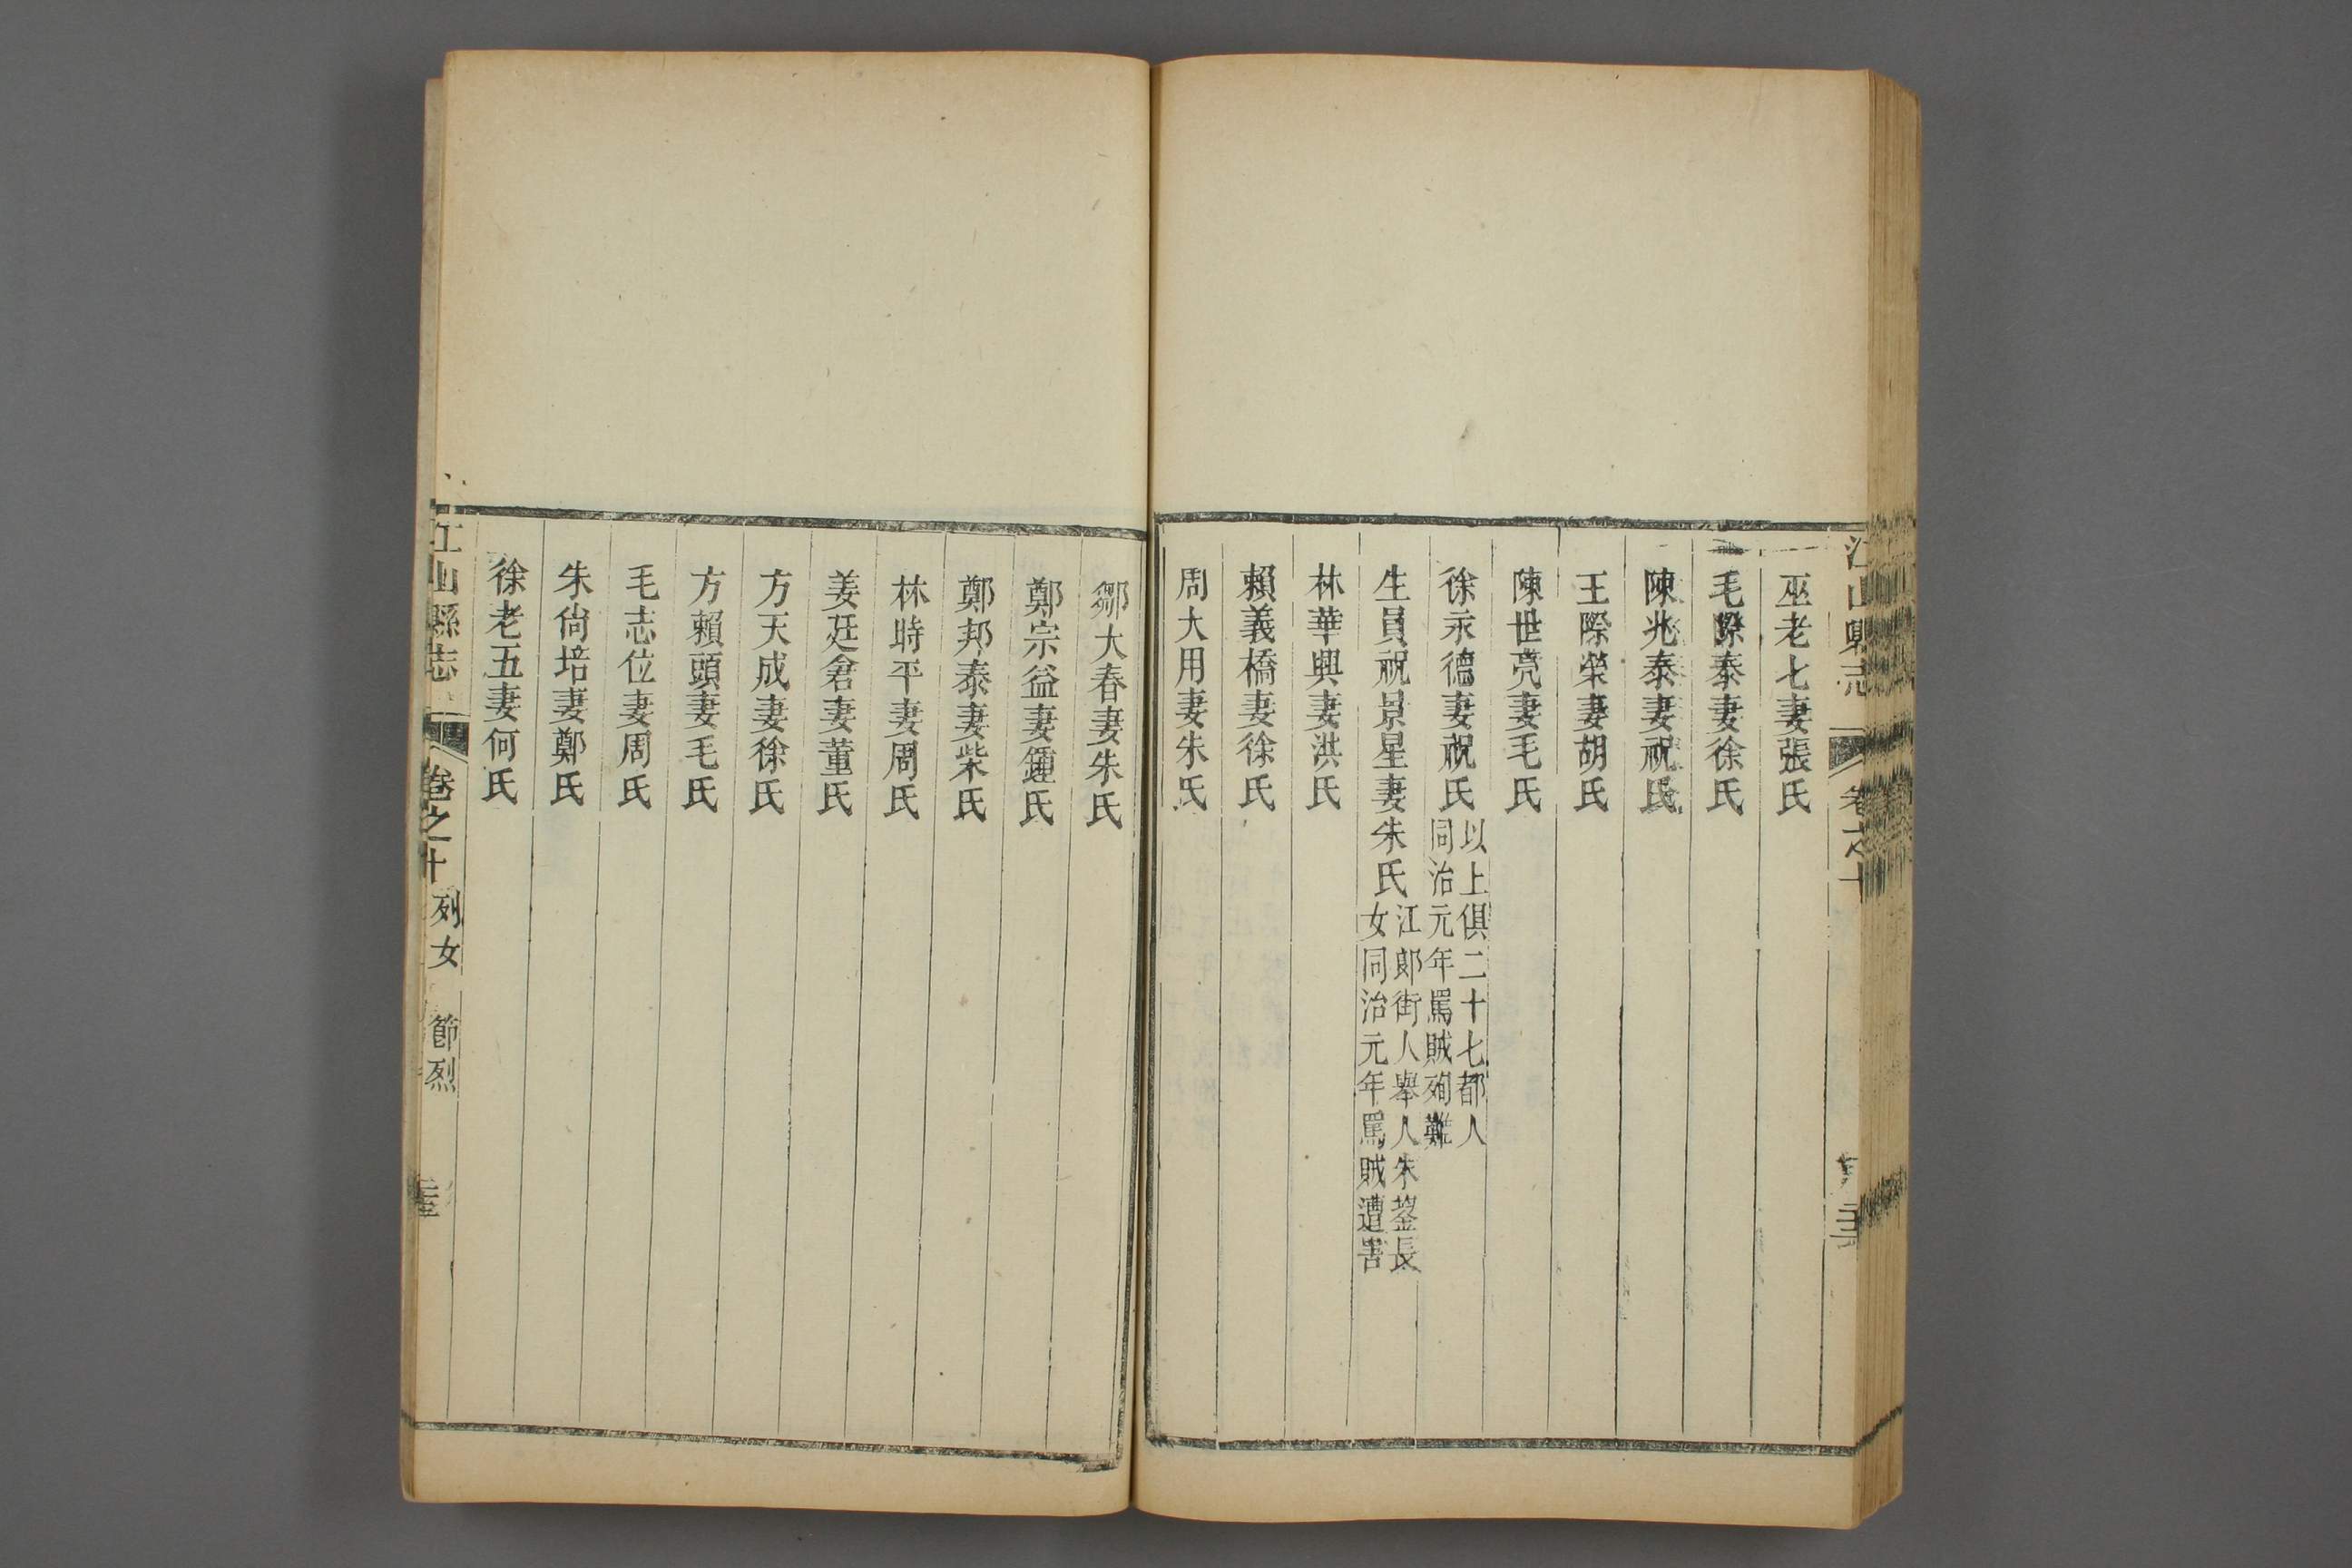 巫老七妻張氏
毛際泰妻徐氏
陳兆泰妻祝氏
王際榮妻胡氏
陳世亮妻毛氏
徐永德妻祝氏
以上俱二十七都人
同治元年罵賊殉難
生員祝景星妻朱氏
江郞街人舉人朱鋆長
女同治元年罵賊遭害
林華興妻洪氏
賴義橋妻徐氏
周大用妻朱氏
鄒大春妻朱氏
鄭宗益妻鍾氏
鄭邦泰妻柴氏
林時平妻周氏
姜廷倉妻董氏
方天成妻徐氏
方賴頭妻毛氏
毛志位妻周氏
朱尙培妻鄭氏
徐老五妻何氏
江山縣志 卷之十 列女 節烈